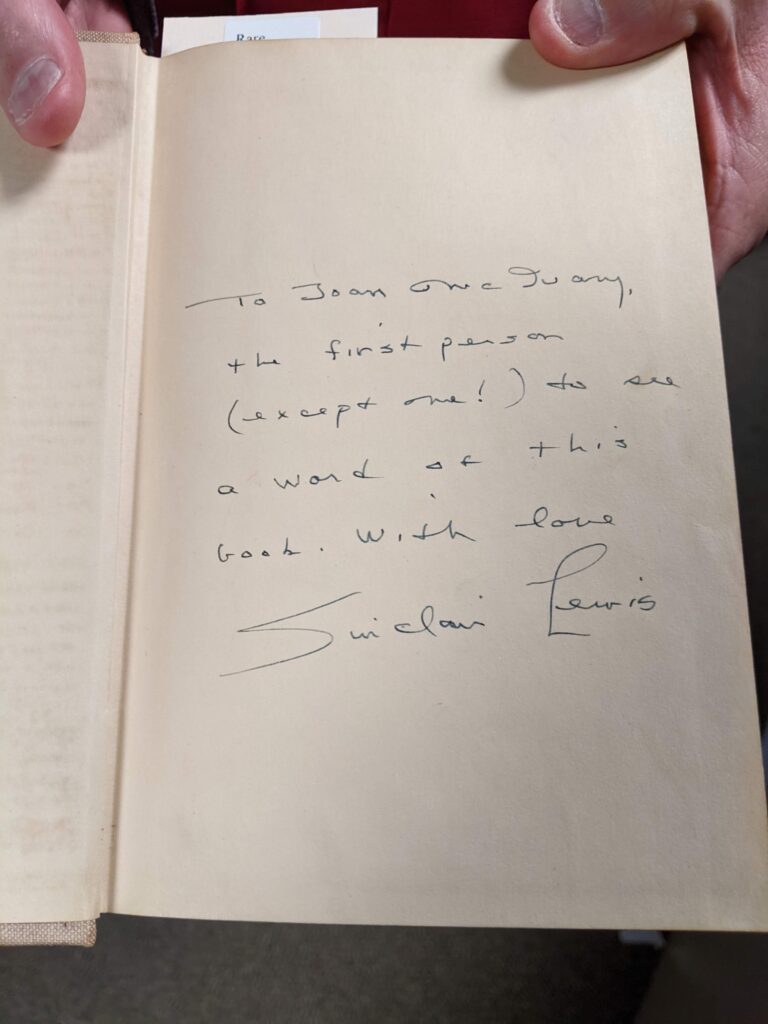 Rare
To Joan McQuary,
the first person
(except one!) to see
a word of this
book. With love
Sinclair Lewis